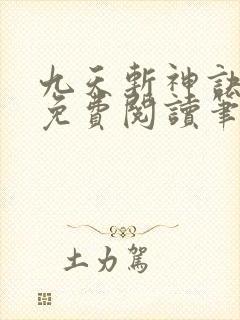 九天斬神訣
免費閱讀筆
土力駕